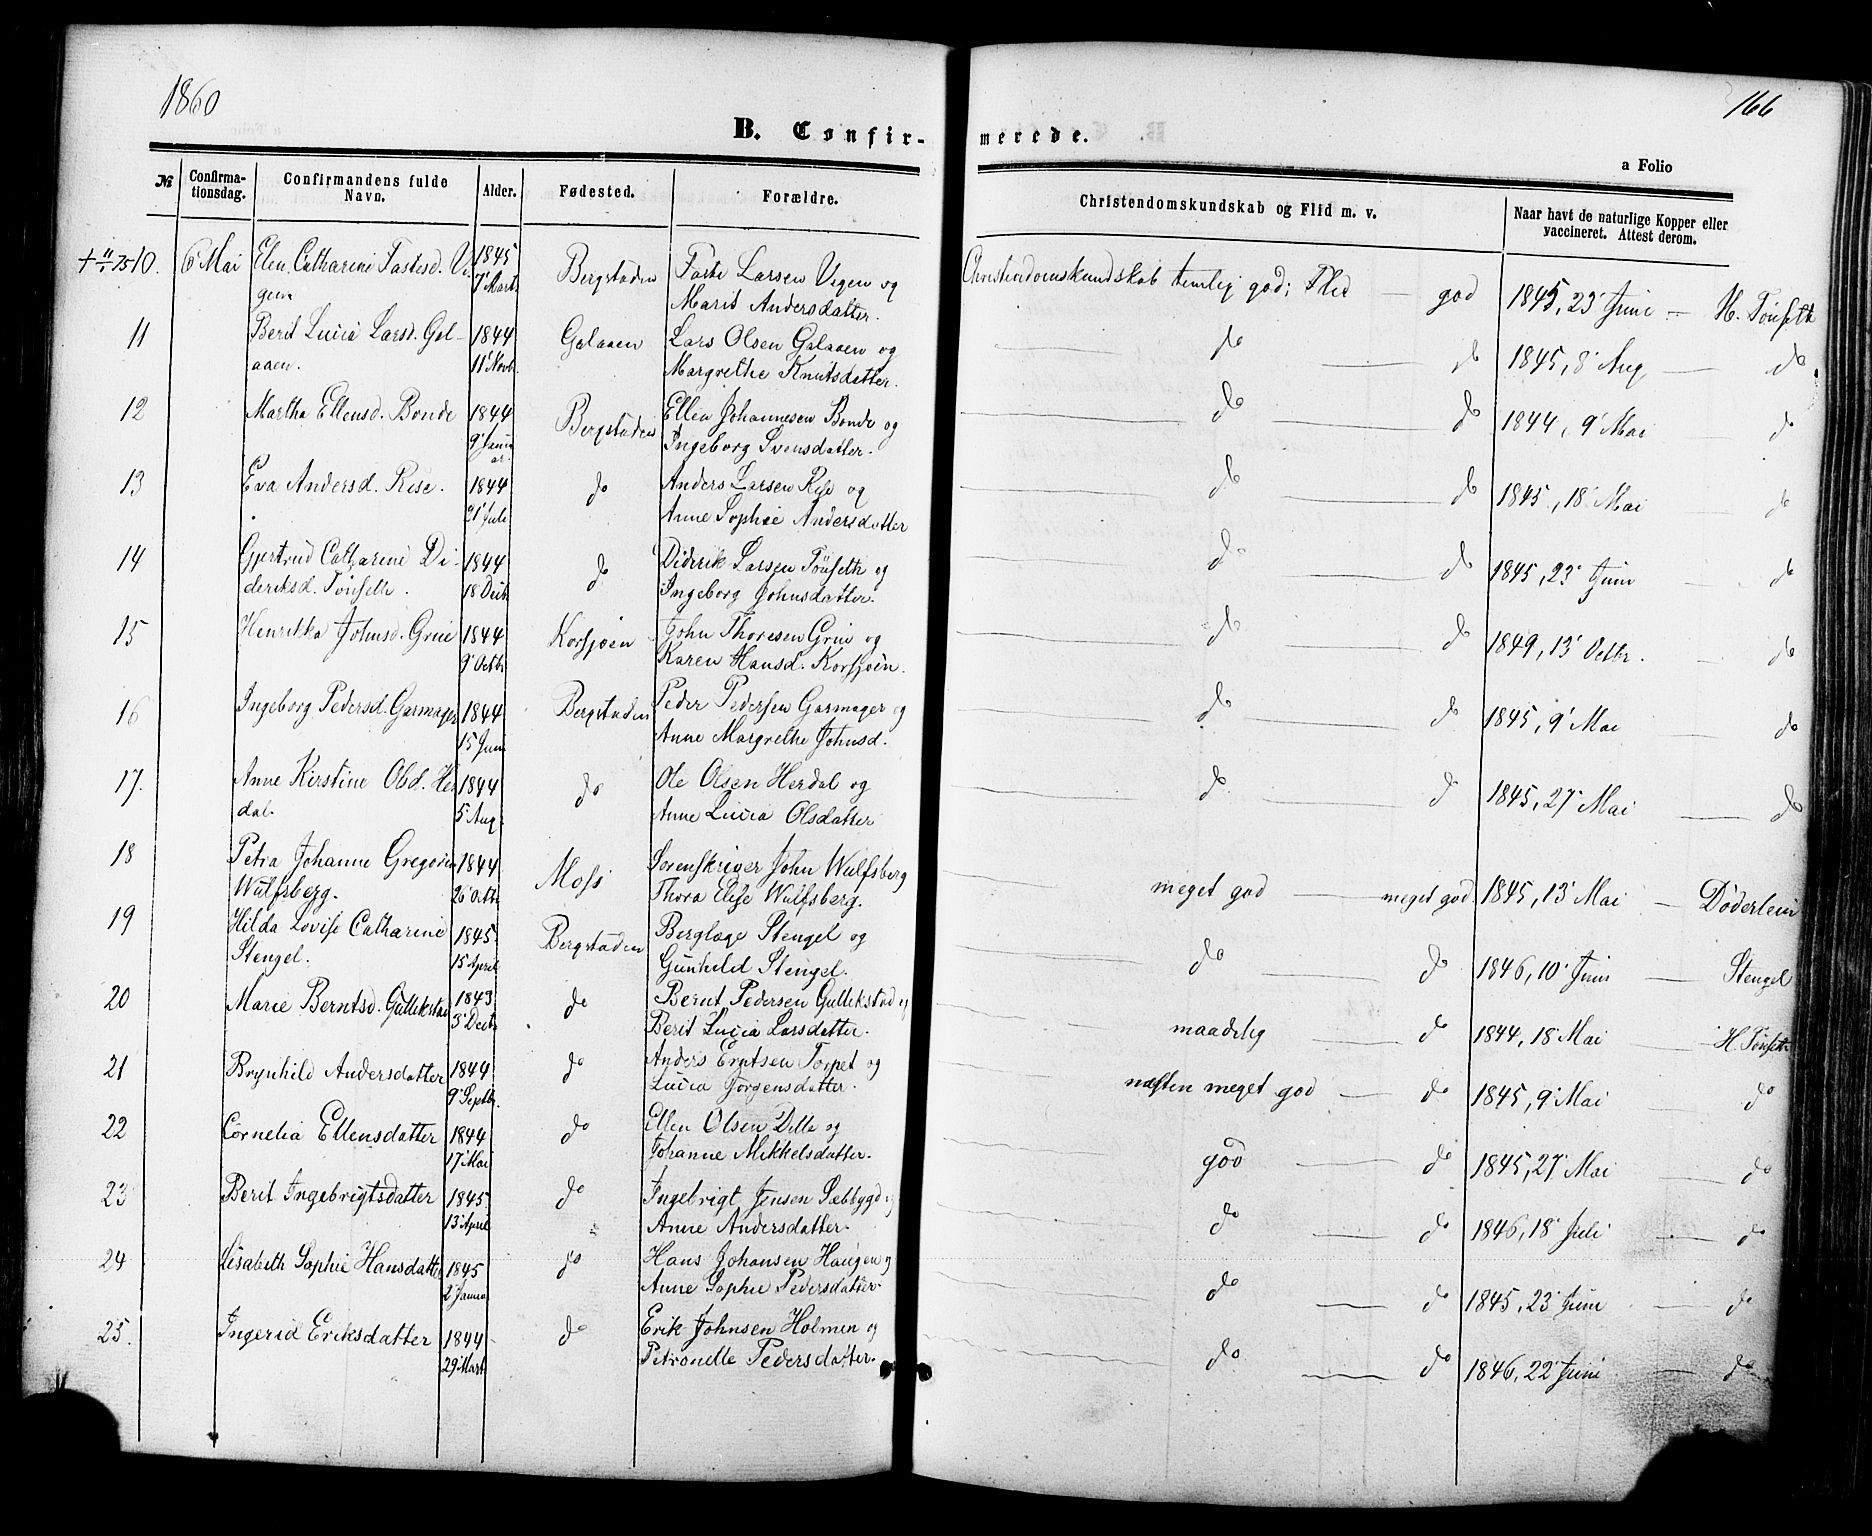 1860
166
B. Confir-
merede.
a Folio
№
Confirma-
tionsdag.
Confirmandens fulde
Navn.
Alder.
Fødested.
Forældre.
Christendomskundskab og Flid m. v.
Naar havt de naturlige Kopper eller
vaccineret. Attest derom.
10. 6 Mai Elen Catharine Fastesd. Vi- 1845 Bergstaden Faste Larsen Vigen og Christendomskundskab temlig god; Flid — god 1845, 23' Juni — H. Tönseth
gen 7' Marts Marit Andersdatter.
11 Berit Lucia Larsd. Gal- 1844 Galaaen Lars Olsen Galaaen og do — do 1845, 8' Aug — do
aaen. 11' Novb. Margrethe Knutsdatter.
12 Martha Ellensd. Bonde 1844 Bergstaden Ellen Johannesen Bonde og do — do 1844, 9' Mai — do
9' Janu
ar. Ingeborg Svensdatter.
13 Eva Andersd. Rise. 1844 do Anders Larsen Rise og do — do 1845, 18' Mai — do
21' Juli Anne Sophie Andersdatter
14 Gjertrud Catharine Di- 1844 do Diderik Larsen Tönseth og do — do 1845, 23' Juni — do
deriksd. Tönseth. 18 Decb Ingeborg Johnsdatter.
15 Henrikka Johnsd. Grue 1844 Korssjoen John Thoresen Grue og do — do 1849, 13' Octbr. — do
9' Octb Karen Hansd. Korssjoën.
16 Ingeborg Pedersd. Garmager 1844 Bergstaden Peder Pedersen Garmager og do — do 1845, 9' Mai — do
15 Juni Anne Margrethe Johnsd.
17. Anne Kirstine Olsd. Her 1844 do Ole Olsen Herdal og do — do 1845, 27' Mai — do
dal. 5' Aug. Anne Lucia Olsdatter
18 Petra Johanne Gregorea 1844 Moss Sorenskriver John Wulfsberg meget god — meget god 1845, 13' Mai — Döderlein
Wulfsberg. 26' Octb Thora Elise Wulfsberg.
19 Hilda Lovise Catharine 1845. Bergstaden Berglæge Stengel og do — do 1846, 10' Juni — Stengel
Stengel. 15 April Gunhild Stengel.
20 Marie Berntsd. Gullikstad 1843 do Bernt Pedersen Gullikstad og maadelig — do 1844, 18' Mai — H. Tönseth
Decb Berit Lucia Larsdatter.
21 Brynhild Andersdatter 1844 do Anders Erntsen Torpet og næsten meget god — do 1845, 9' Mai — do
9' Septbr. Lucia Jörgensdatter.
22 Cornelia Ellensdatter 1844 do Ellen Olsen Dille og god — do 1845, 27' Mai — do
17' Mai Johanne Mikkelsdatter.
23 Berit Ingebrigtsdatter 1845. do Ingebrigt Jensen Sæbbygd og do — do 1846, 18' Juli — do
13' April Anne Andersdatter.
24 Lisabeth Sophie Hansdatter 1845 do Hans Johansen Haugen og do — do 1845, 23' Juni — do
2' Janua Anne Sophie Pedersdatter.
25. Ingerid Eriksdatter 1844 do Erik Johnsen Holmen og do — do 1846, 22' Juni — do
29' Mart Petronelle Pedersdatter.